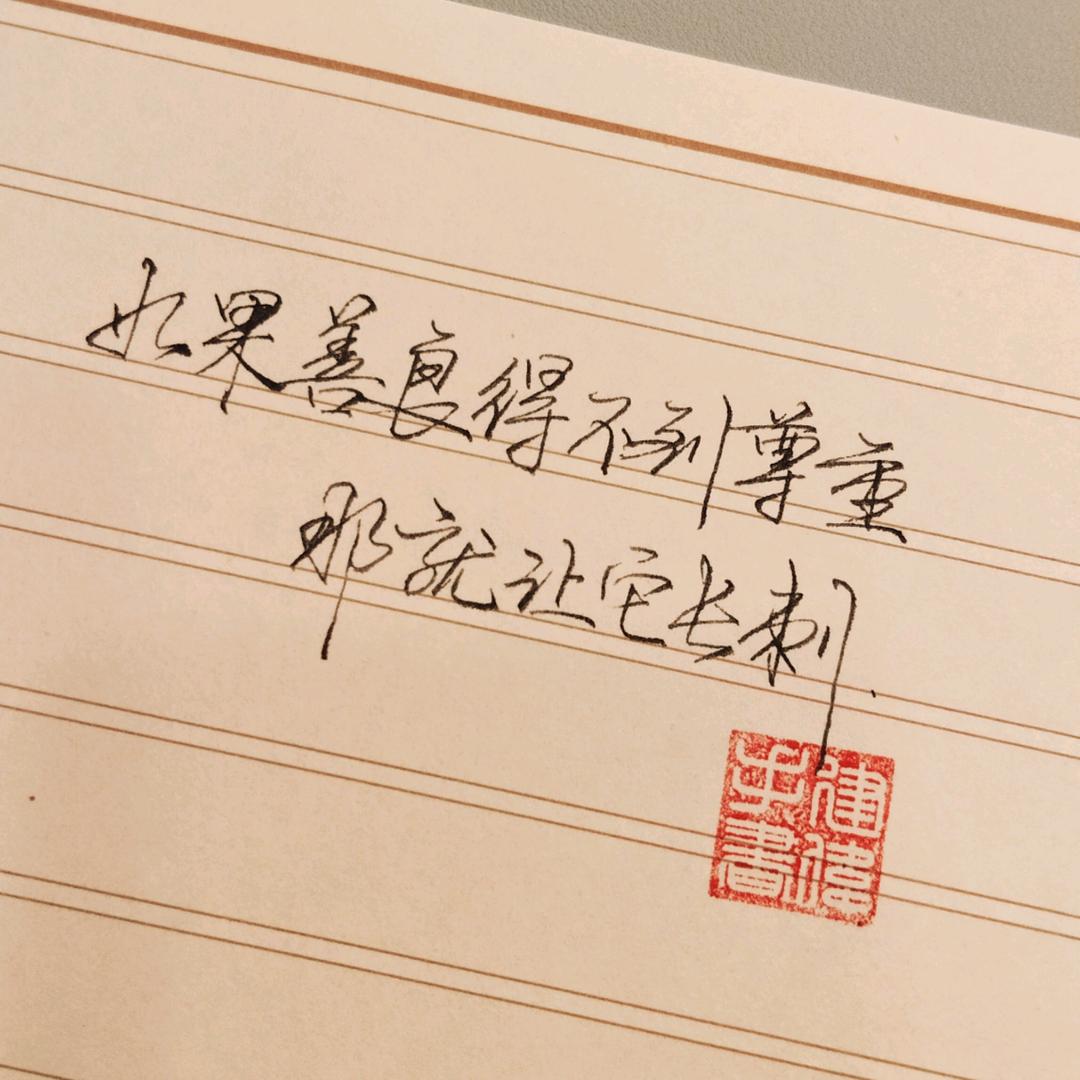 如果善良得不到尊重
那就让它长刺.
建伟
手书